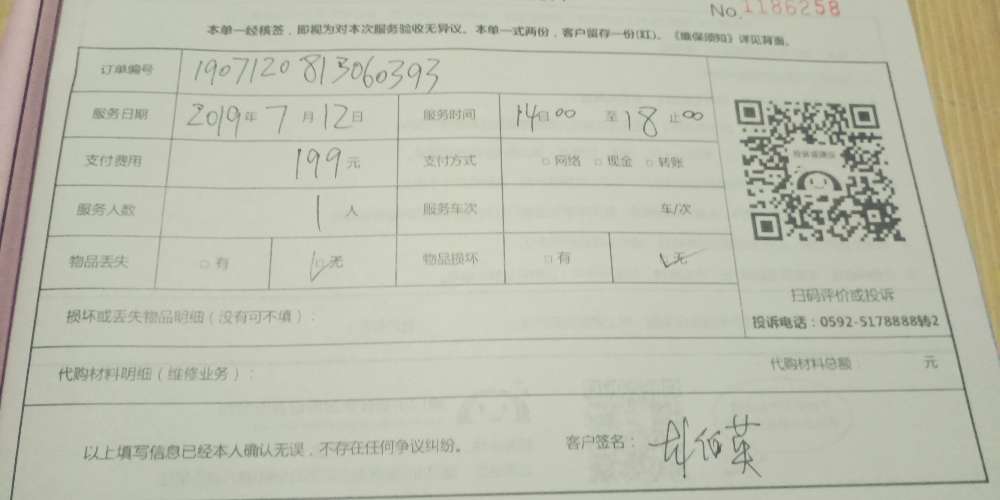 No. 1186258
本单一经核签，即视为对本次服务验收无异议。本单一式两份，客户留存一份(红)。《维保须知》详见背面。
订单编号 190712081306​0393
服务日期 2019年 7 月 12 日 服务时间 14 00 至 18 止 00
支付费用 199 元 支付方式 □ 网络 □ 现金 □ 转账
服务人数 1 人 服务车次 车/次
物品丢失 □ 有 □ 无 物品损坏 □ 有 □ 无
扫码评价或投诉
损坏或丢失物品明细（没有可不填）：
投诉电话：0592-5178888转2
代购材料明细（维修业务）： 代购材料总额： 元
以上填写信息已经本人确认无误，不存在任何争议纠纷。 客户签名：